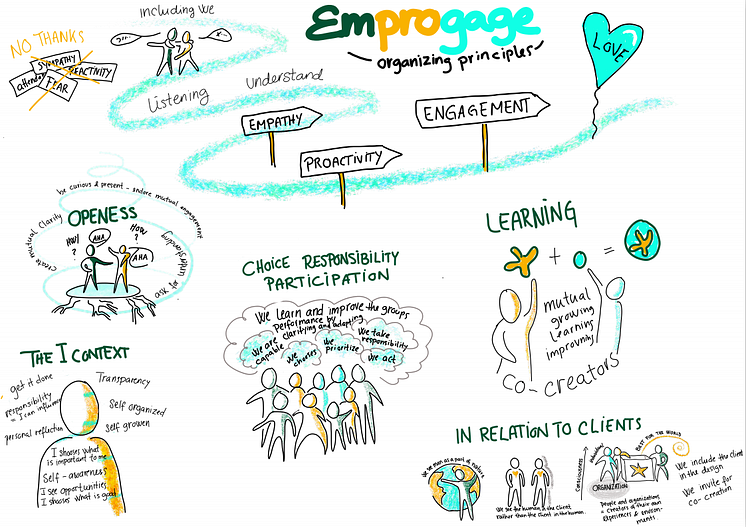 Including We
Emprogage
organizing principles
LOVE
NO THANKS
SYMPATHY
REACTIVITY
FEAR
Listening
Understand
EMPATHY
PROACTIVITY
ENGAGEMENT
be curious & present - endore mutual engagement
create mutual clarity
OPENESS
HOW
?
AHA
HOW
?
AHA
ask for
CHOICE RESPONSIBILITY
PARTICIPATION
We learn and improve the groups
performance by
clarifying and adapting
We are
capable
We
chooses
We
prioritize
We take
responsibility
We act
LEARNING
+ =
mutual
growing
learning
improving
co-creators
THE I CONTEXT
get it done
responsibility
= I can influence
personal reflection
Transparency
Self organized
Self growen
I shooses what
is important to me
Self-awareness
I see opportunities
I shooses what is good
IN RELATION TO CLIENTS
We see man as a part of nature
We see the human in the client
rather than the client in the human.
Consciousness
ORGANIZATION
BEST FOR THE WORLD
People and organizations
= Creators of their own
Experiences & environ-
ments
We include the client
in the design
We invite for
co-creation